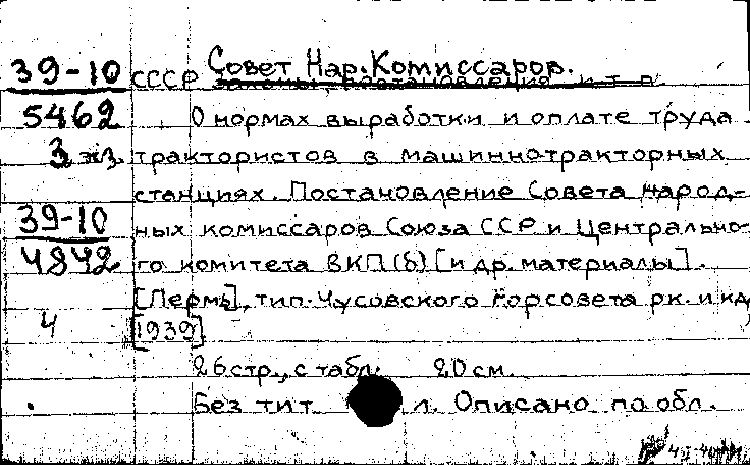 39-10 СССР Совет Нар. Комиссаров.
законы, постановления и т.п.
5462 О нормах выработки и оплате труда
3 экз. трактористов в машинно-тракторных
станциях. Постановление Совета народ-
39-10 ных комиссаров Союза ССР и Центрально-
4842 го комитета ВКП(б) [и др. материалы].
[Пермь], тип. Чусовского горсовета рк. и кд,
4 [1939].
26 стр., с табл. 20 см.
Без тит. л. Описано по обл.